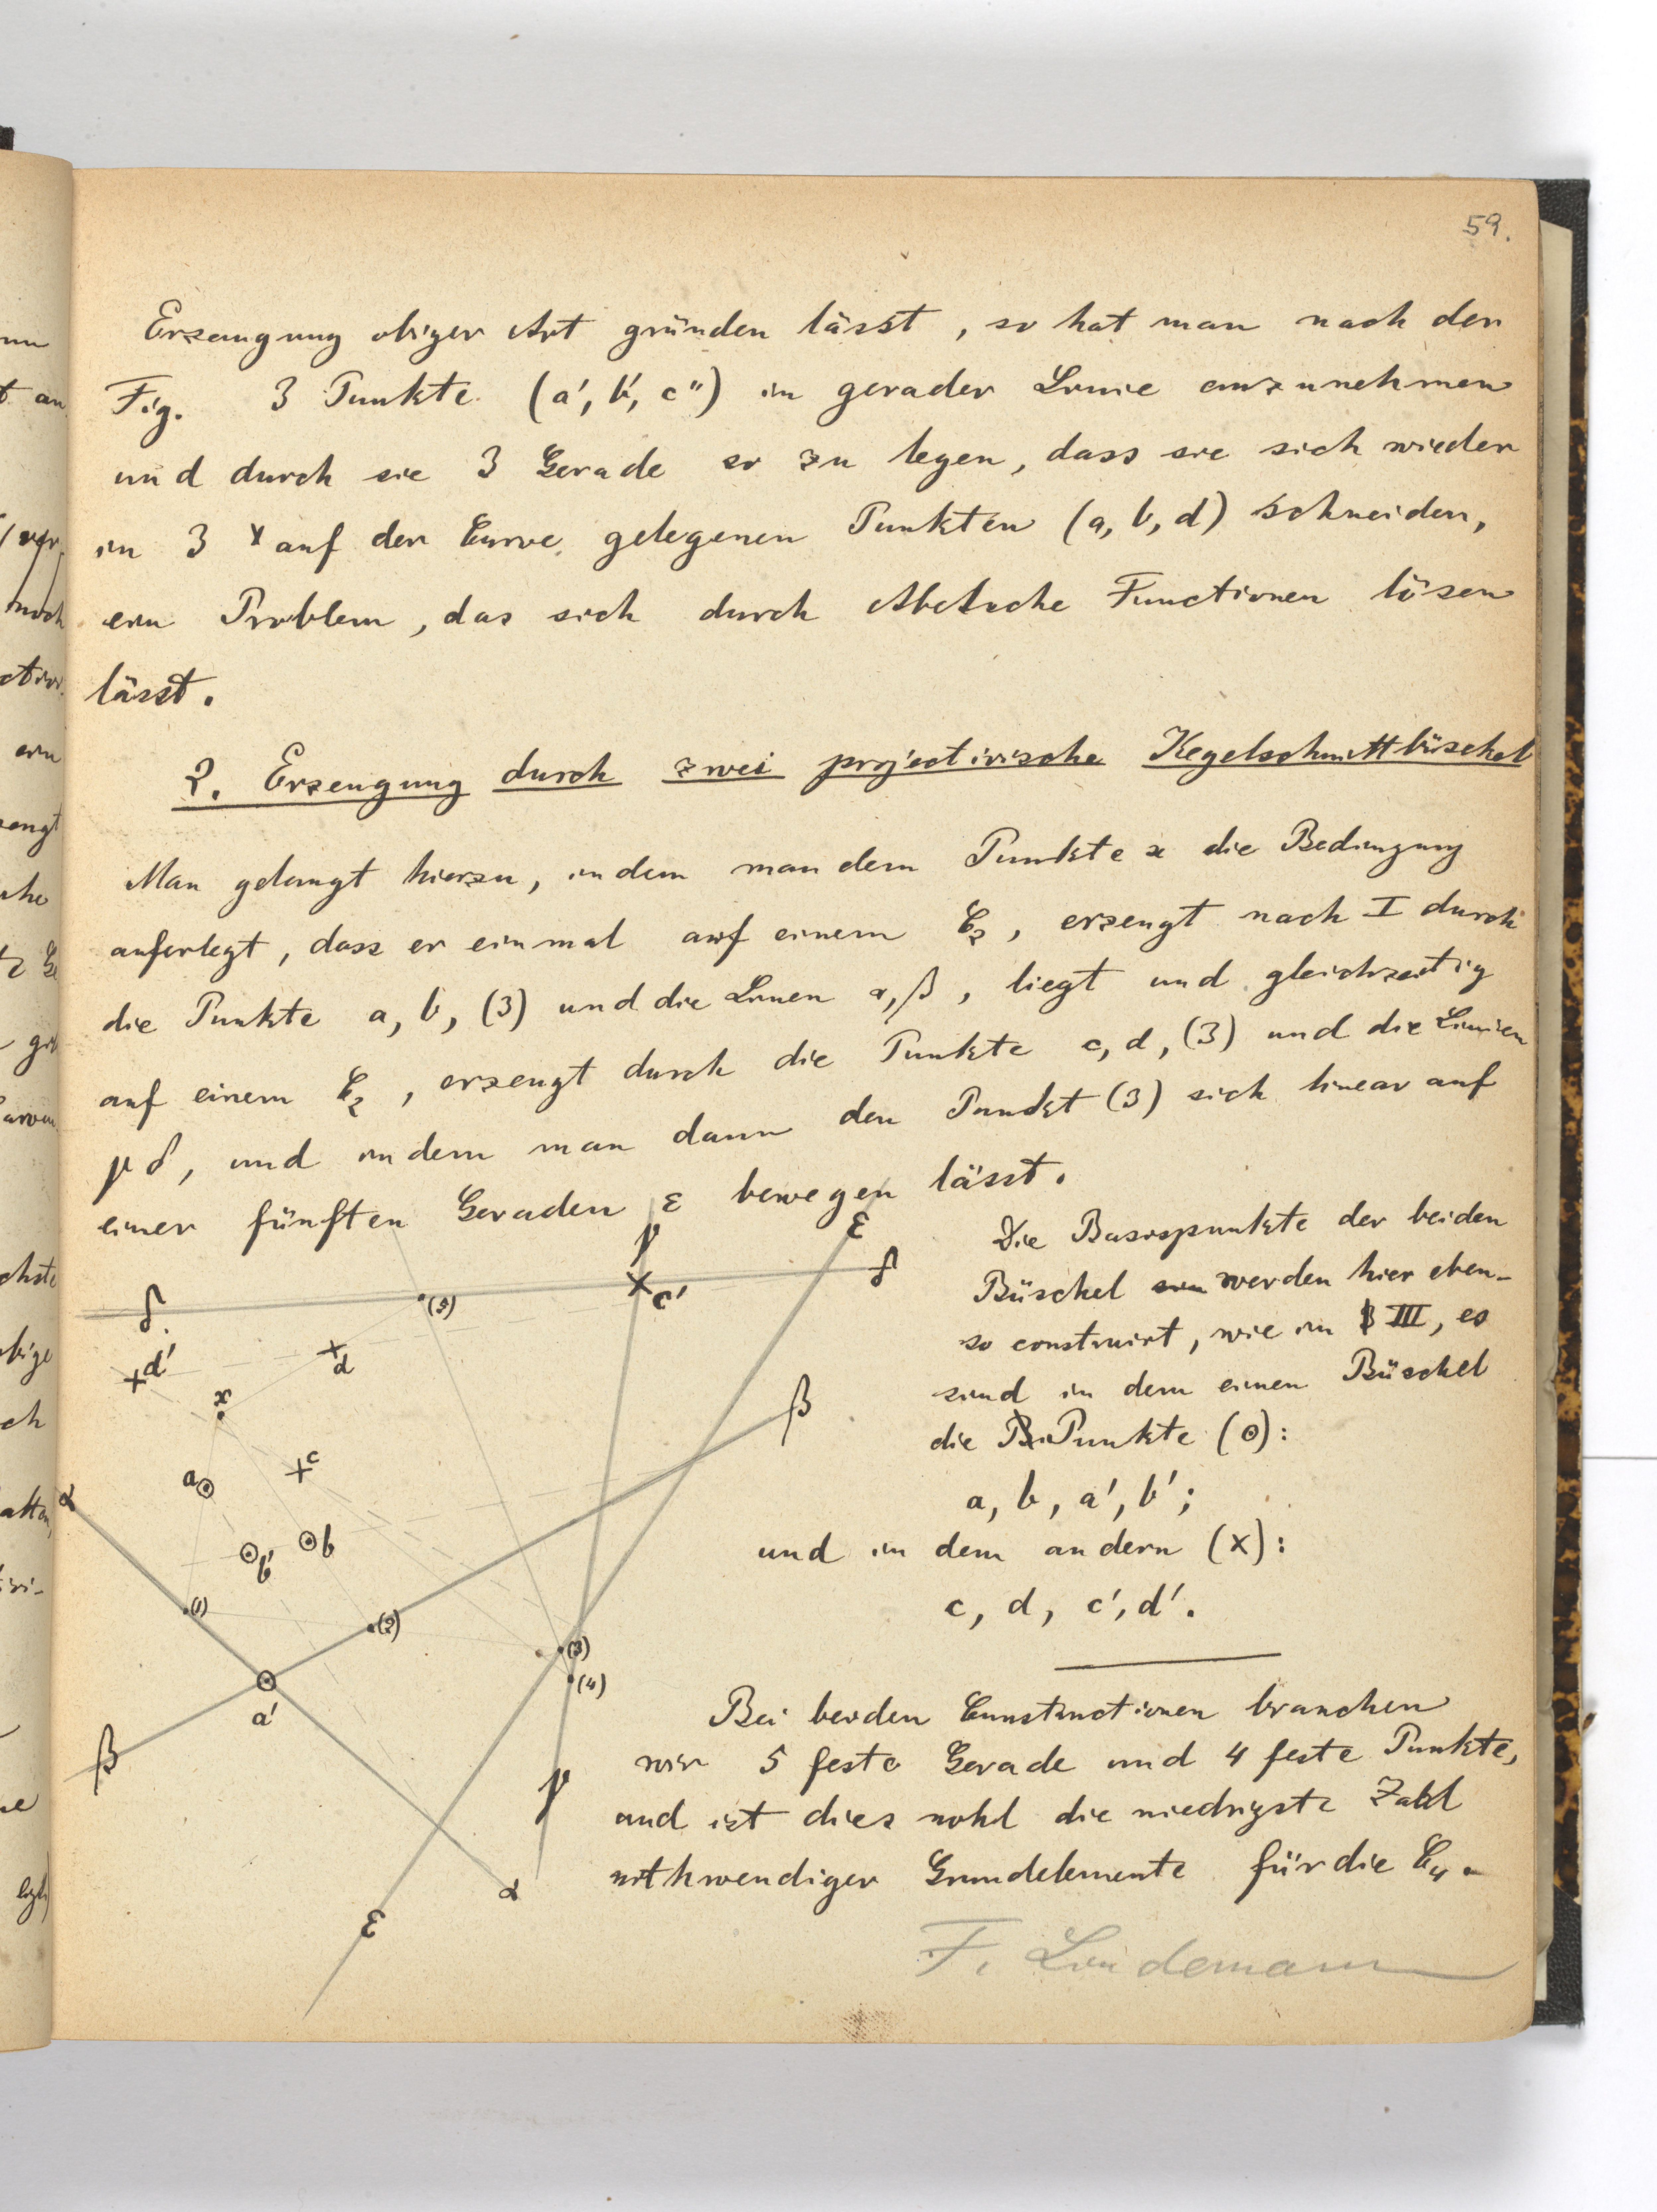 59.
Erzeugung obiger Art gründen lässt, so hat man nach der
Fig. 3 Punkte (a', b', c'') in gerader Linie anzunehmen
und durch sie 3 Gerade so zu legen, dass sie sich wieder
in 3 auf der Curve gelegenen Punkten (a, b, d) schneiden,
ein Problem, das sich durch Abelsche Functionen lösen
lässt.
2. Erzeugung durch zwei projectivische Kegelschnittbüschel
Man gelangt hierzu, indem man dem Punkte x die Bedingung
auferlegt, dass er einmal auf einem C₂, erzeugt nach I durch
die Punkte a, b, (3) und die Linien α, β, liegt und gleichzeitig
auf einem C₂, erzeugt durch die Punkte c, d, (3) und die Linien
γ δ, und indem man dann den Punkt (3) sich linear auf
einer fünften Geraden ε bewegen lässt.
Die Basispunkte der beiden
Büschel werden hier eben-
so construirt, wie in III, es
sind in dem einen Büschel
die Punkte (⊙):
a, b, a', b';
und in dem andern (x):
c, d, c', d'.
Bei beiden Constructionen brauchen
wir 5 feste Gerade und 4 feste Punkte,
und ist dies wohl die niedrigste Zahl
nothwendiger Grundelemente für die C₄.
F. Lindemann
γ
ε
δ
δ
(5)
c'
d'
d
x
β
c
a
α
b
b'
(1)
(2)
(3)
(4)
a'
β
γ
α
ε